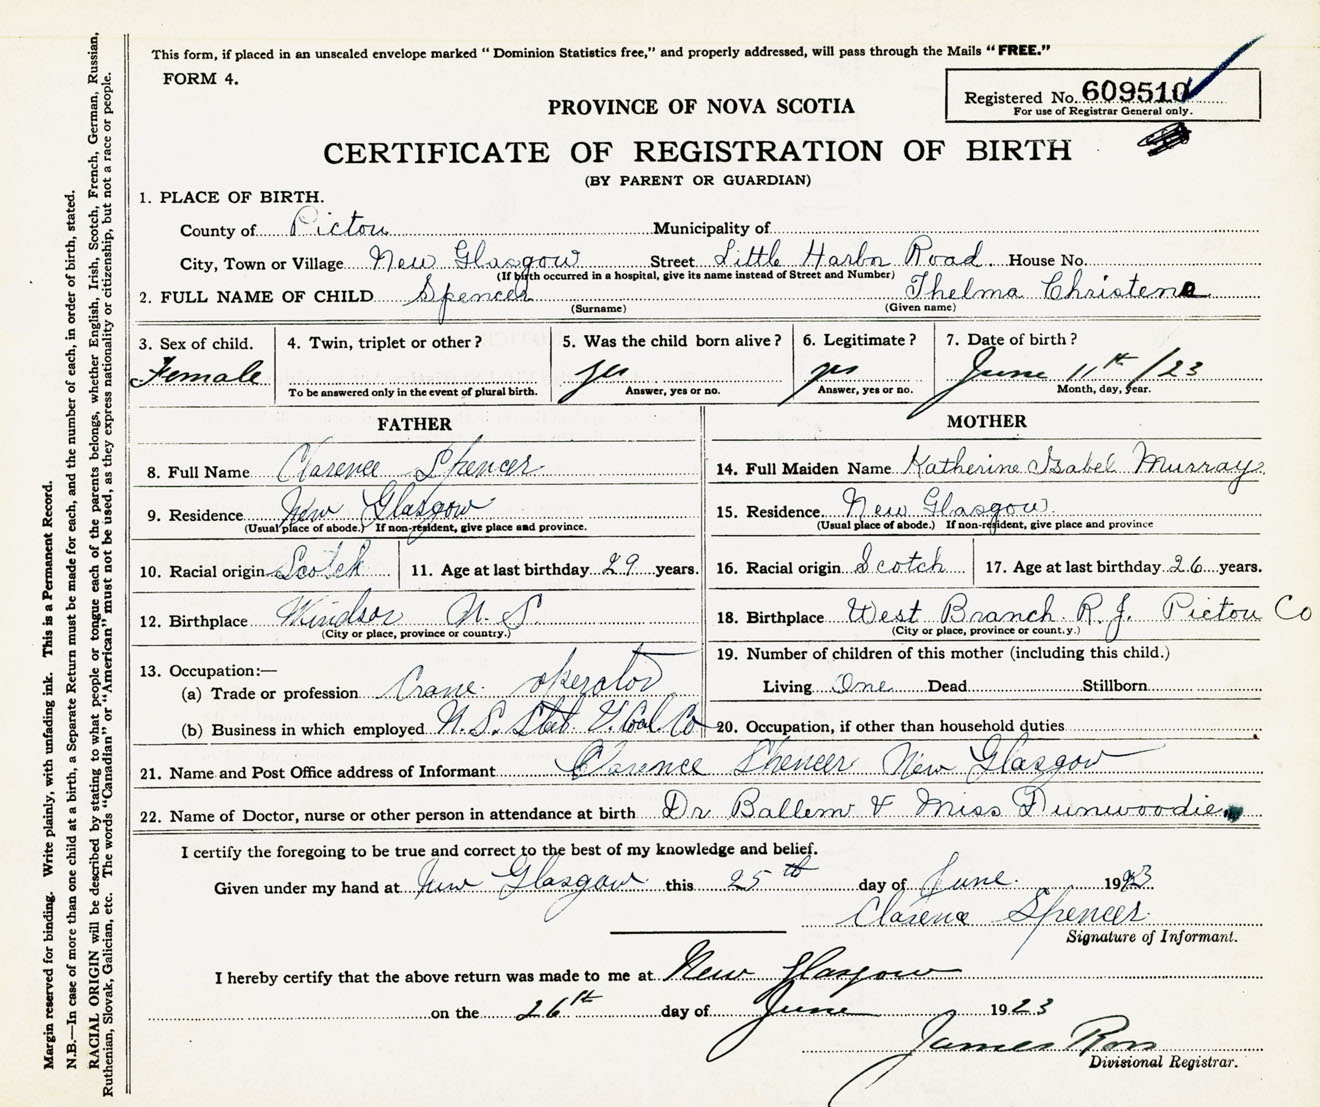 This form, if placed in an unscaled envelope marked " Dominion Statistics free," and properly addressed, will pass through the Mails "FREE."
FORM 4.
Registered No. 609510
For use of Registrar General only.
PROVINCE OF NOVA SCOTIA
CERTIFICATE OF REGISTRATION OF BIRTH
(BY PARENT OR GUARDIAN)
1. PLACE OF BIRTH.
County of Pictou Municipality of
City, Town or Village New Glasgow Street Little Harbor Road House No.
(If birth occurred in a hospital, give its name instead of Street and Number)
2. FULL NAME OF CHILD Spencer Thelma Christena
(Surname) (Given name)
3. Sex of child. 4. Twin, triplet or other? 5. Was the child born alive? 6. Legitimate? 7. Date of birth?
Female yes yes June 11th /23
To be answered only in the event of plural birth. Answer, yes or no. Answer, yes or no. Month, day, year.
FATHER MOTHER
8. Full Name Clarence Spencer 14. Full Maiden Name Katherine Isabel Murray
9. Residence New Glasgow 15. Residence New Glasgow
(Usual place of abode.) If non-resident, give place and province. (Usual place of abode.) If non-resident, give place and province
10. Racial origin Scotch 11. Age at last birthday 29 years. 16. Racial origin Scotch 17. Age at last birthday 26 years.
12. Birthplace Windsor N. S. 18. Birthplace West Branch R. J. Pictou Co
(City or place, province or country.) (City or place, province or count.y.)
13. Occupation:— 19. Number of children of this mother (including this child.)
(a) Trade or profession Crane operator Living One Dead Stillborn
(b) Business in which employed N. S. Steel & Coal Co 20. Occupation, if other than household duties
21. Name and Post Office address of Informant Clarence Spencer New Glasgow
22. Name of Doctor, nurse or other person in attendance at birth Dr Ballem & Miss Dunwoodie
I certify the foregoing to be true and correct to the best of my knowledge and belief.
Given under my hand at New Glasgow this 25th day of June 1923
Clarence Spencer
Signature of Informant.
I hereby certify that the above return was made to me at New Glasgow
on the 26th day of June 1923
James Ross
Divisional Registrar.
Margin reserved for binding. Write plainly, with unfading ink. This is a Permanent Record.
N.B.—In case of more than one child at a birth, a Separate Return must be made for each, and the number of each, in order of birth, stated.
RACIAL ORIGIN will be described by stating to what people or tongue each of the parents belongs, whether English, Irish, Scotch, French, German, Russian,
Ruthenian, Slovak, Galician, etc. The words "Canadian" or "American" must not be used, as they express nationality or citizenship, but not a race or people.